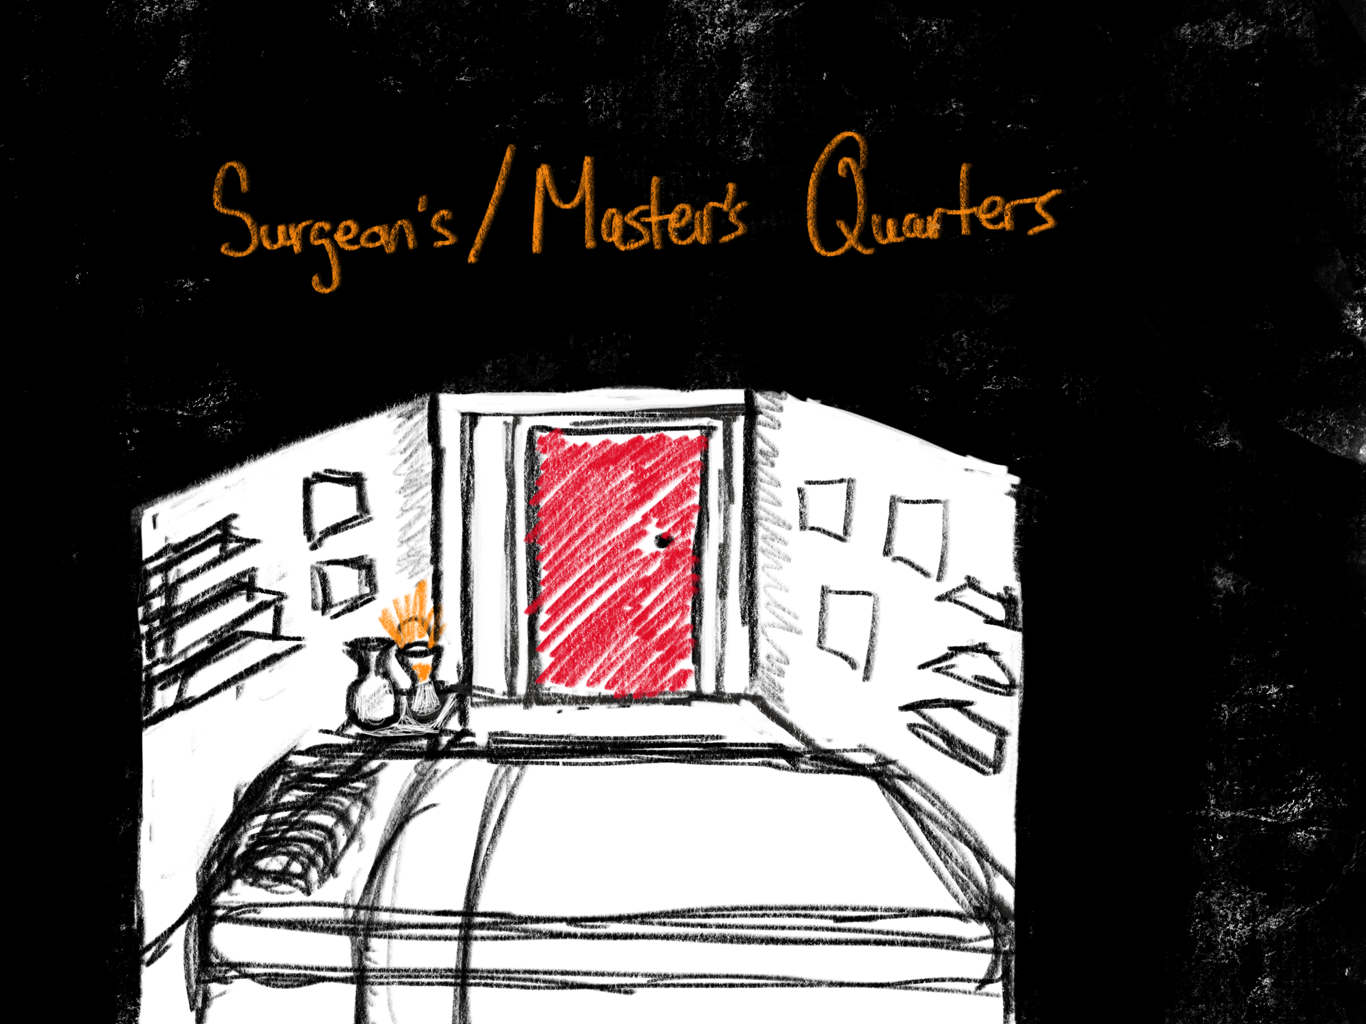 Surgeon's/Master's Quarters